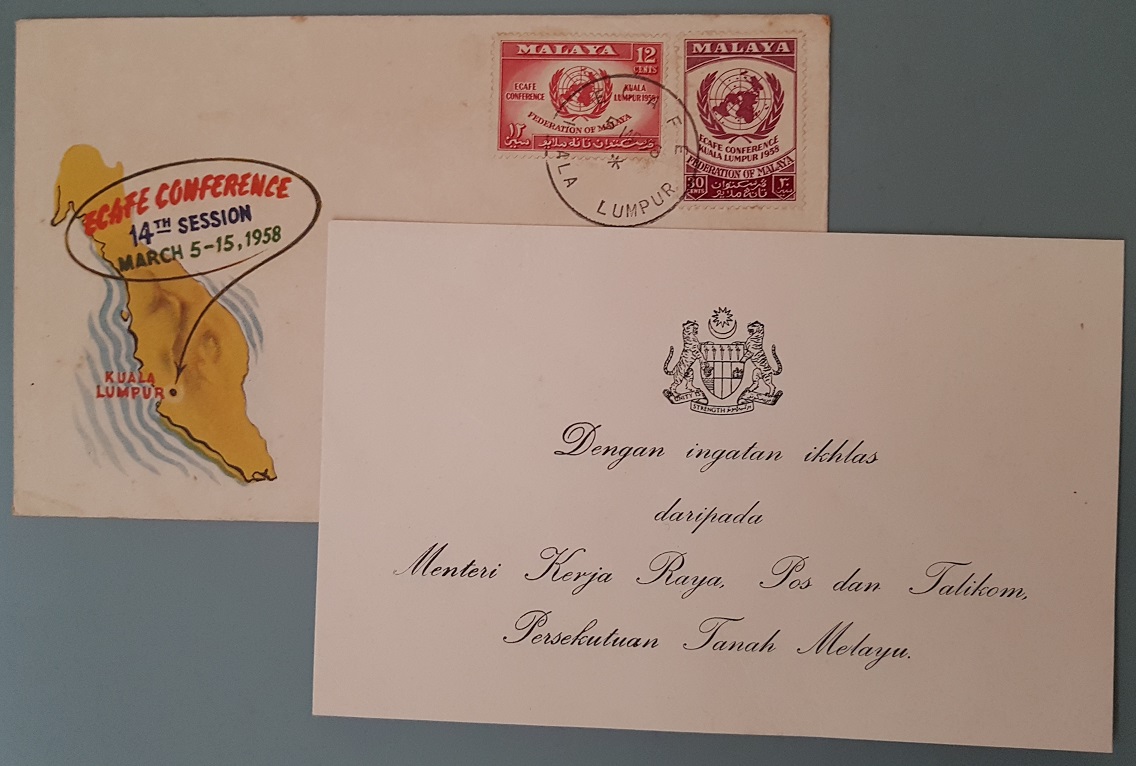 MALAYA 12 CENTS
ECAFE CONFERENCE
KUALA LUMPUR 1958
FEDERATION OF MALAYA
١٢ سين
ڤرسكوتوان تانه ملايو
MALAYA
ECAFE CONFERENCE
KUALA LUMPUR 1958
FEDERATION OF MALAYA
30 CENTS
ڤرسكوتوان
تانه ملايو
٣٠ سين
LUMPUR
ECAFE CONFERENCE
14TH SESSION
MARCH 5-15, 1958
KUALA
LUMPUR
UNITY IS STRENGTH
Dengan ingatan ikhlas
daripada
Menteri Kerja Raya, Pos dan Talikom,
Persekutuan Tanah Melayu.